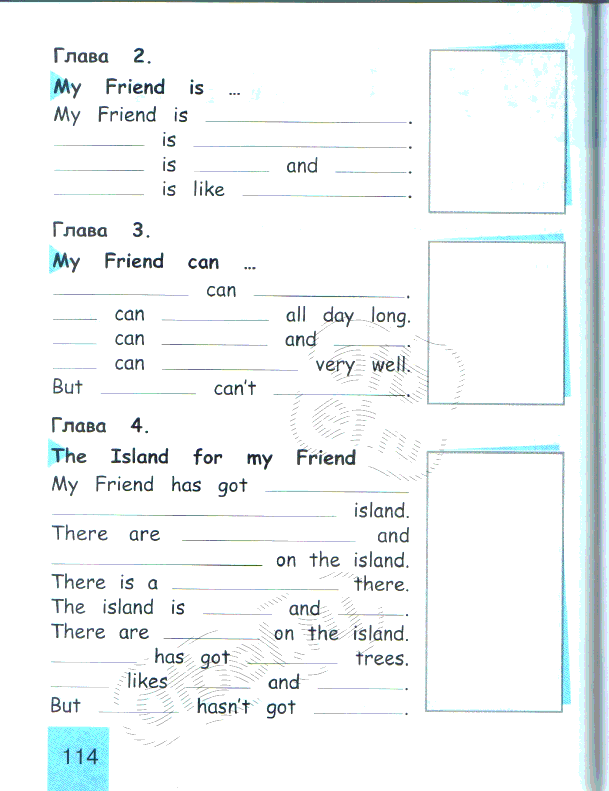 Глава 2.
My Friend is ...
My Friend is ____________.
________ is ____________.
________ is ________ and ________.
________ is like ____________.
Глава 3.
My Friend can ...
____________ can ____________.
____ can ________ all day long.
____ can ________ and ________.
____ can ____________ very well.
But ________ can't ____________.
Глава 4.
The Island for my Friend
My Friend has got ____________
____________________ island.
There are ____________ and
________________ on the island.
There is a ____________ there.
The island is ________ and ________.
There are ________ on the island.
________ has got ________ trees.
______ likes ______ and ________.
But ________ hasn't got ________.
114